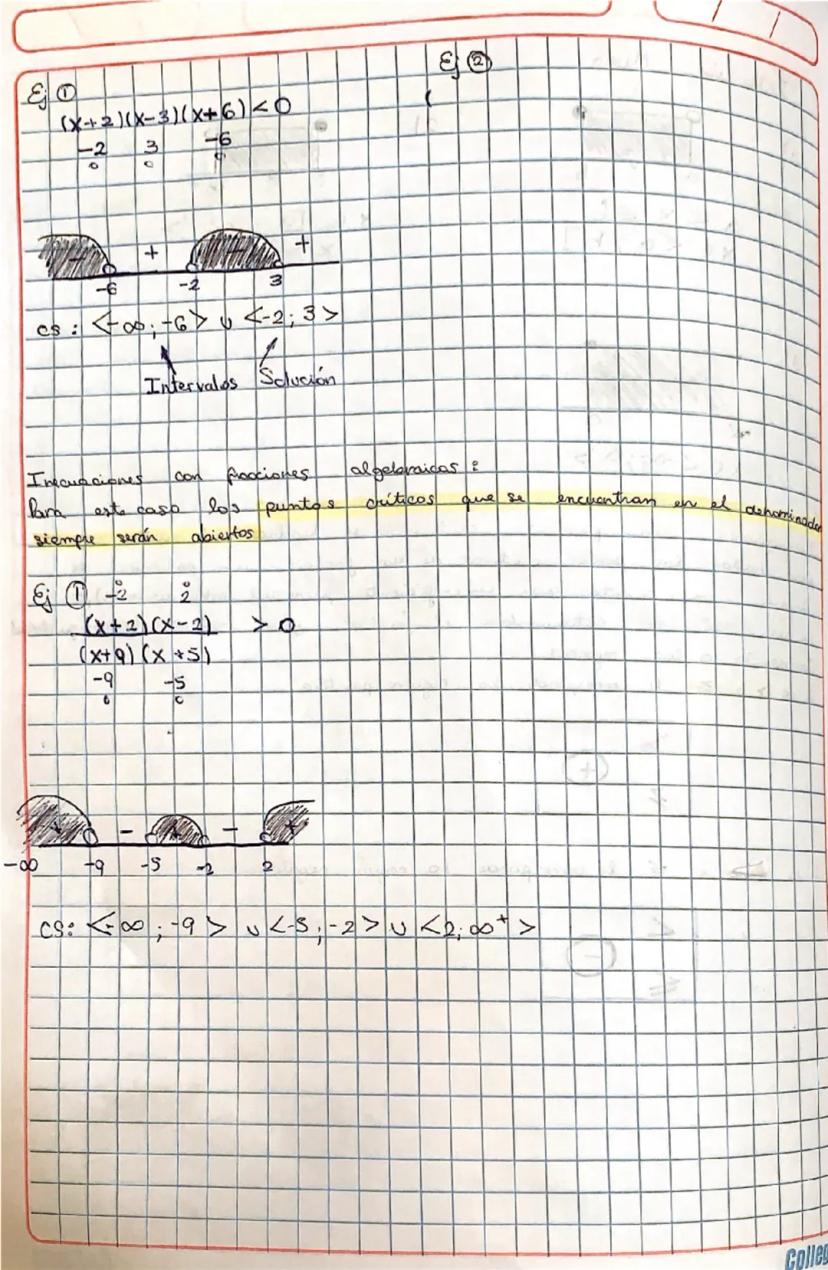 Ej ①
(x+2)(x-3)(x+6) < 0
-2 3 -6
- + - +
-6 -2 3
CS: <-∞; -6> ∪ <-2; 3>
Intervalos Solución
Ej ②
(
Inecuaciones con fracciones algebraicas:
Para este caso los puntos críticos que se encuentran en el denominador
siempre serán abiertos
Ej ① -2 2
(x+2)(x-2) > 0
(x+9)(x+5)
-9 -5
+ - + - +
-∞ -9 -5 -2 2
CS: <-∞; -9> ∪ <-5; -2> ∪ <2; ∞⁺>